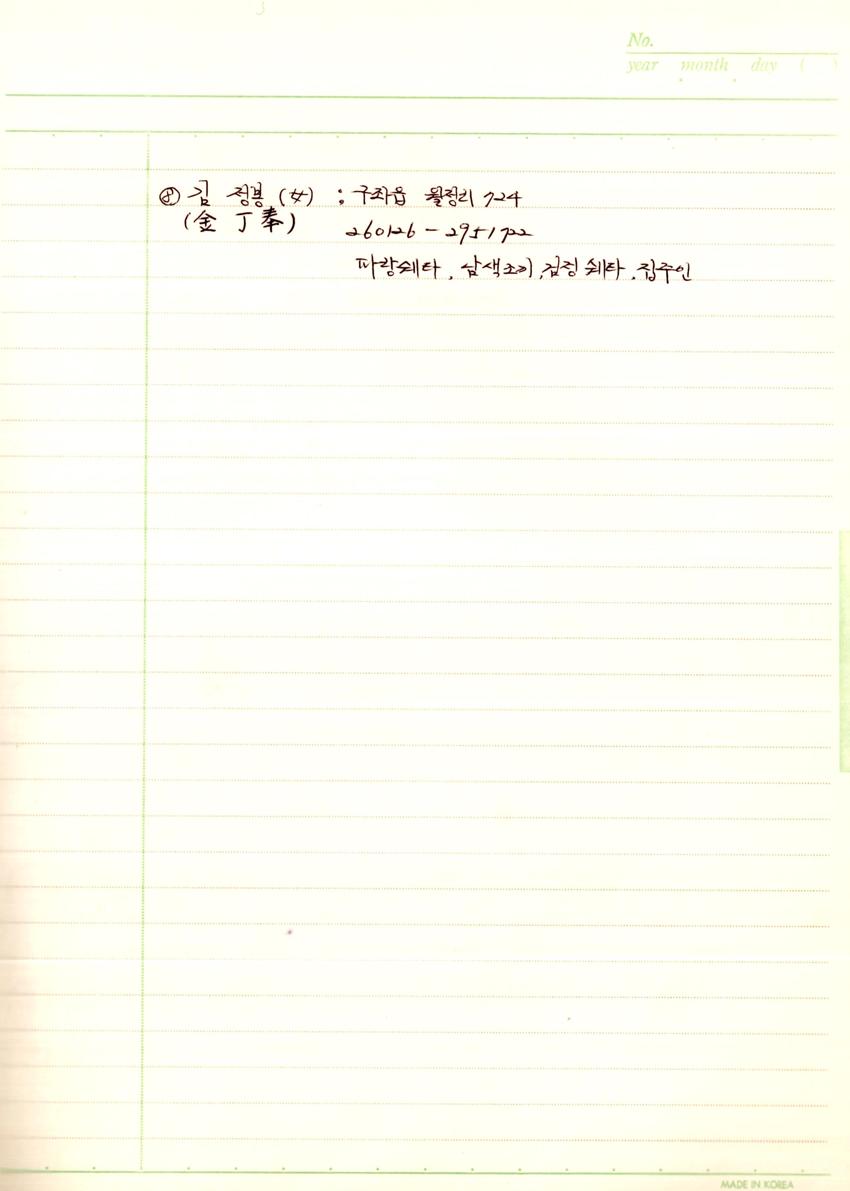 No.
year month day ( )
⑧ 김 정봉 (女) : 구좌읍 월정리 724
(金 丁奉) 260126-2951722
파랑쉐타, 삼색조끼, 검정 쉐타, 집주인
MADE IN KOREA